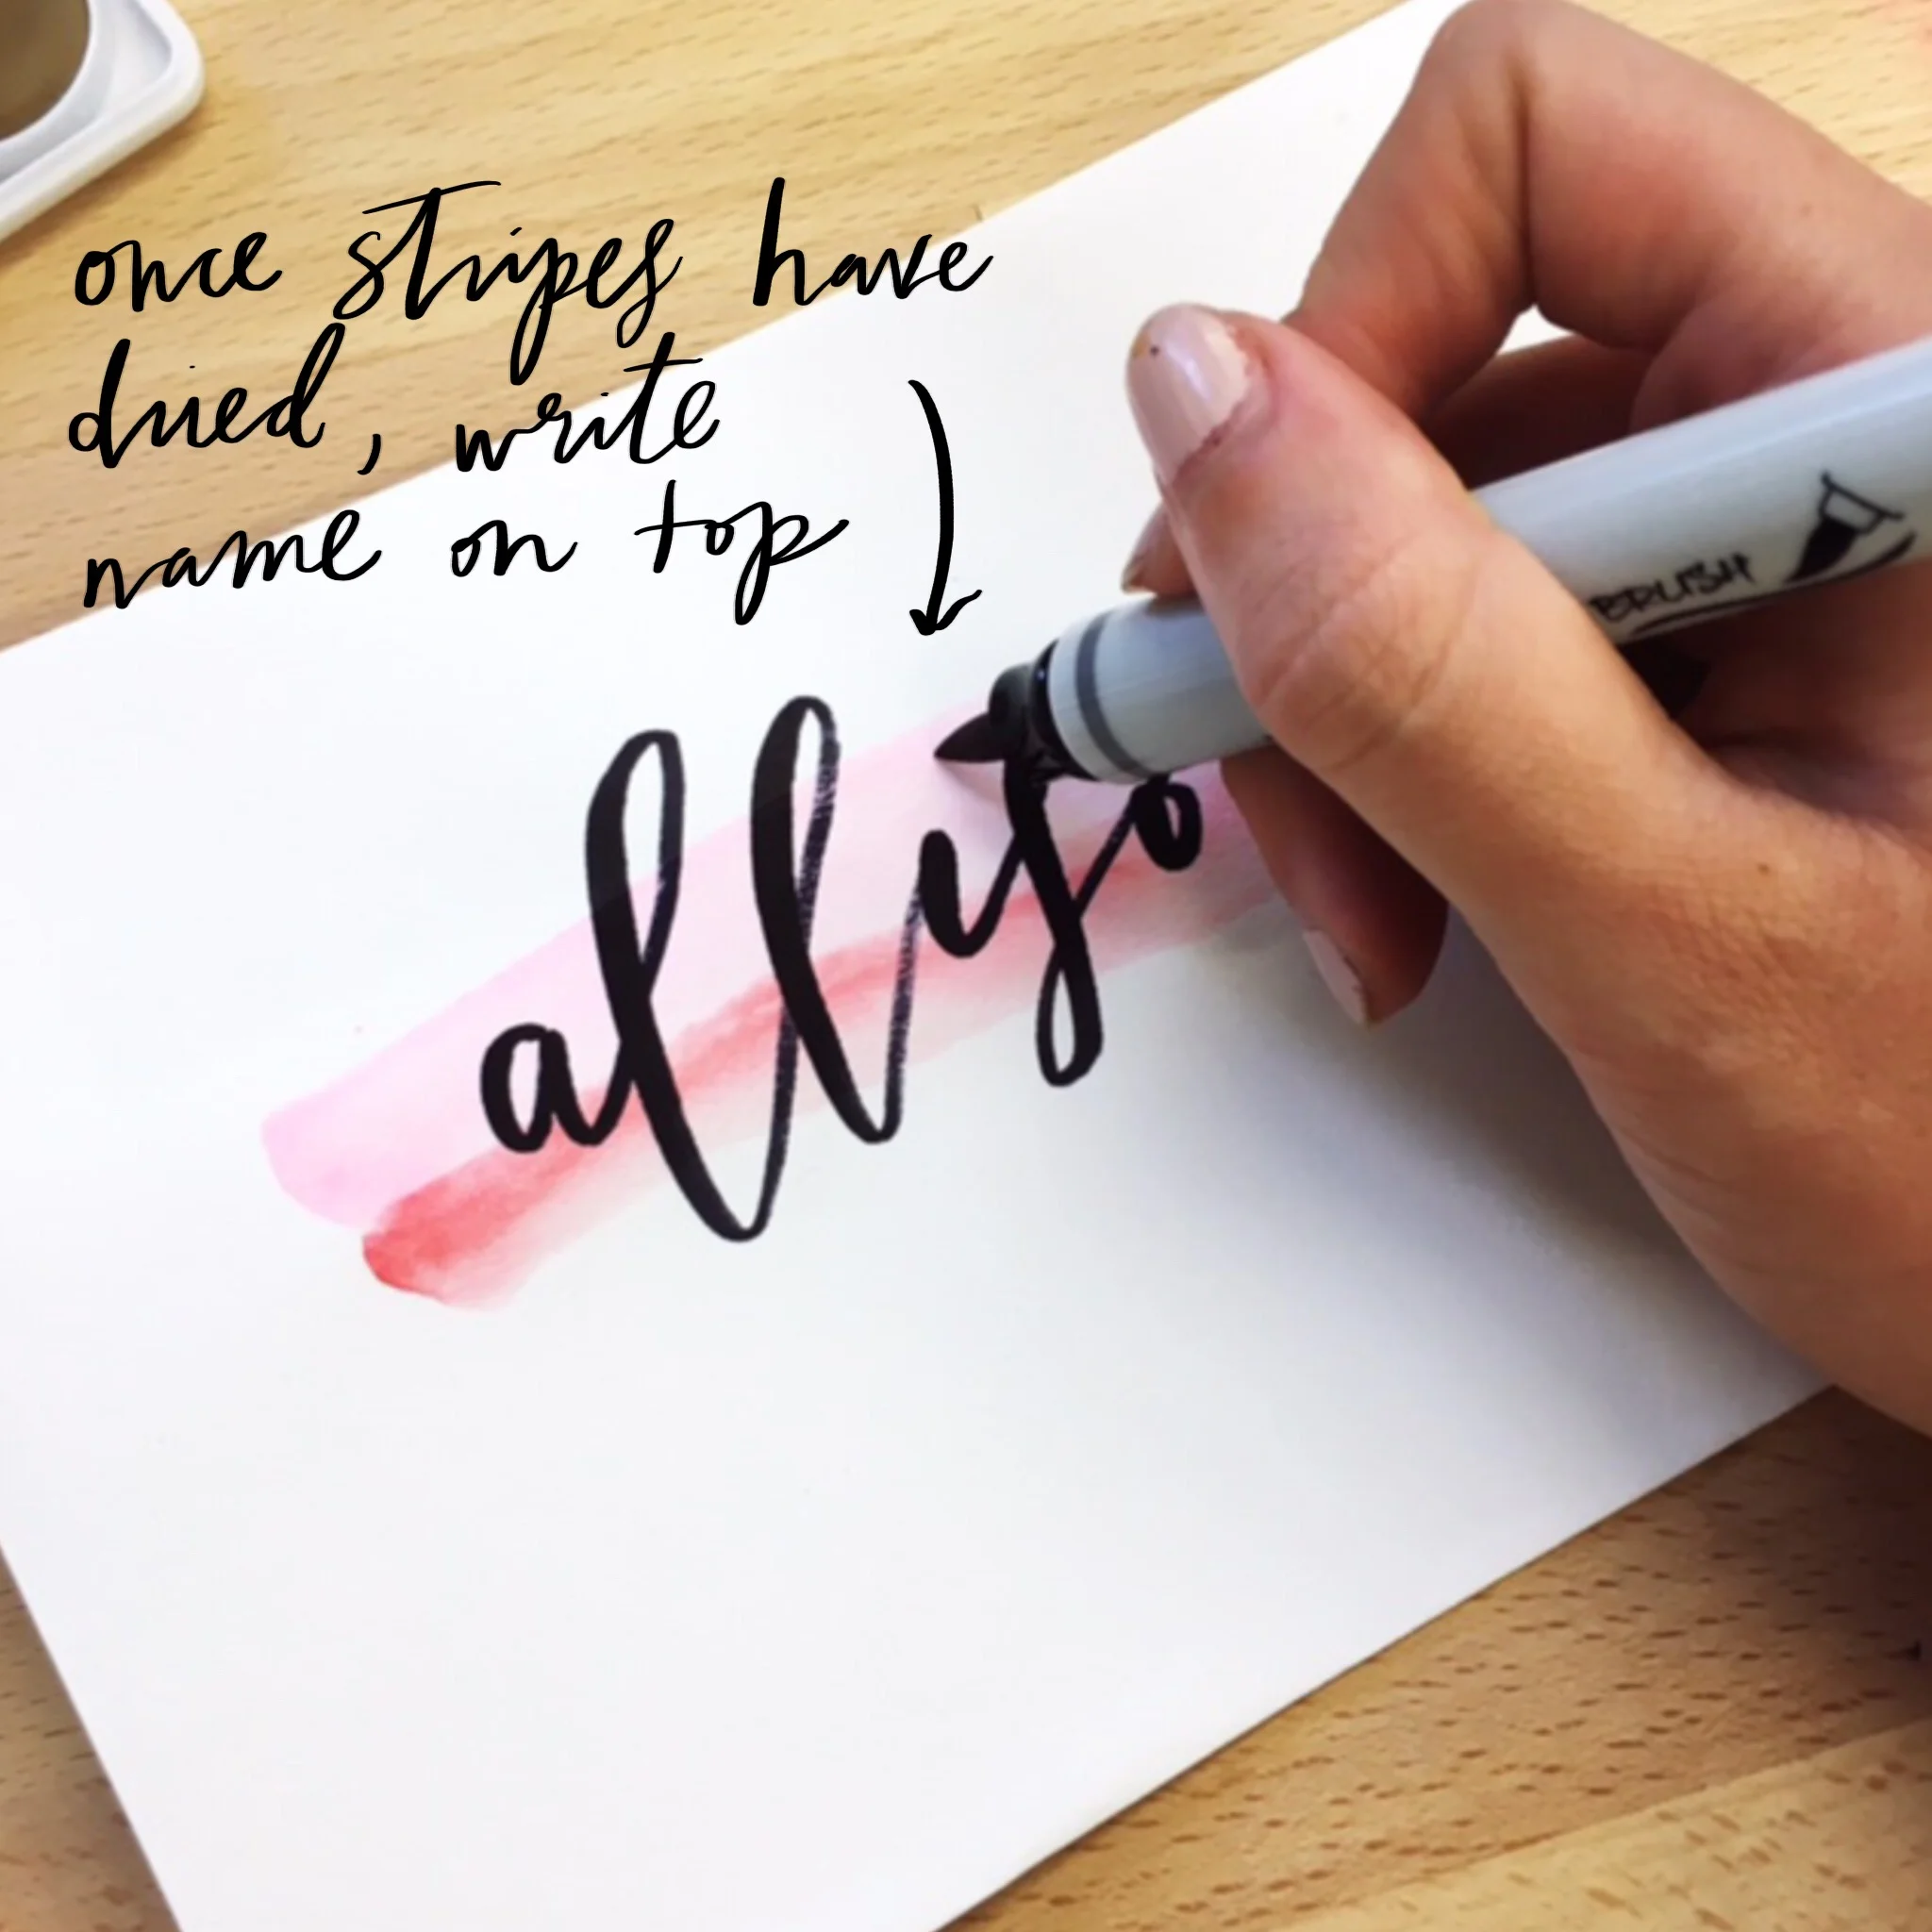 once stripes have
dried, write
name on top
BRUSH
allyso